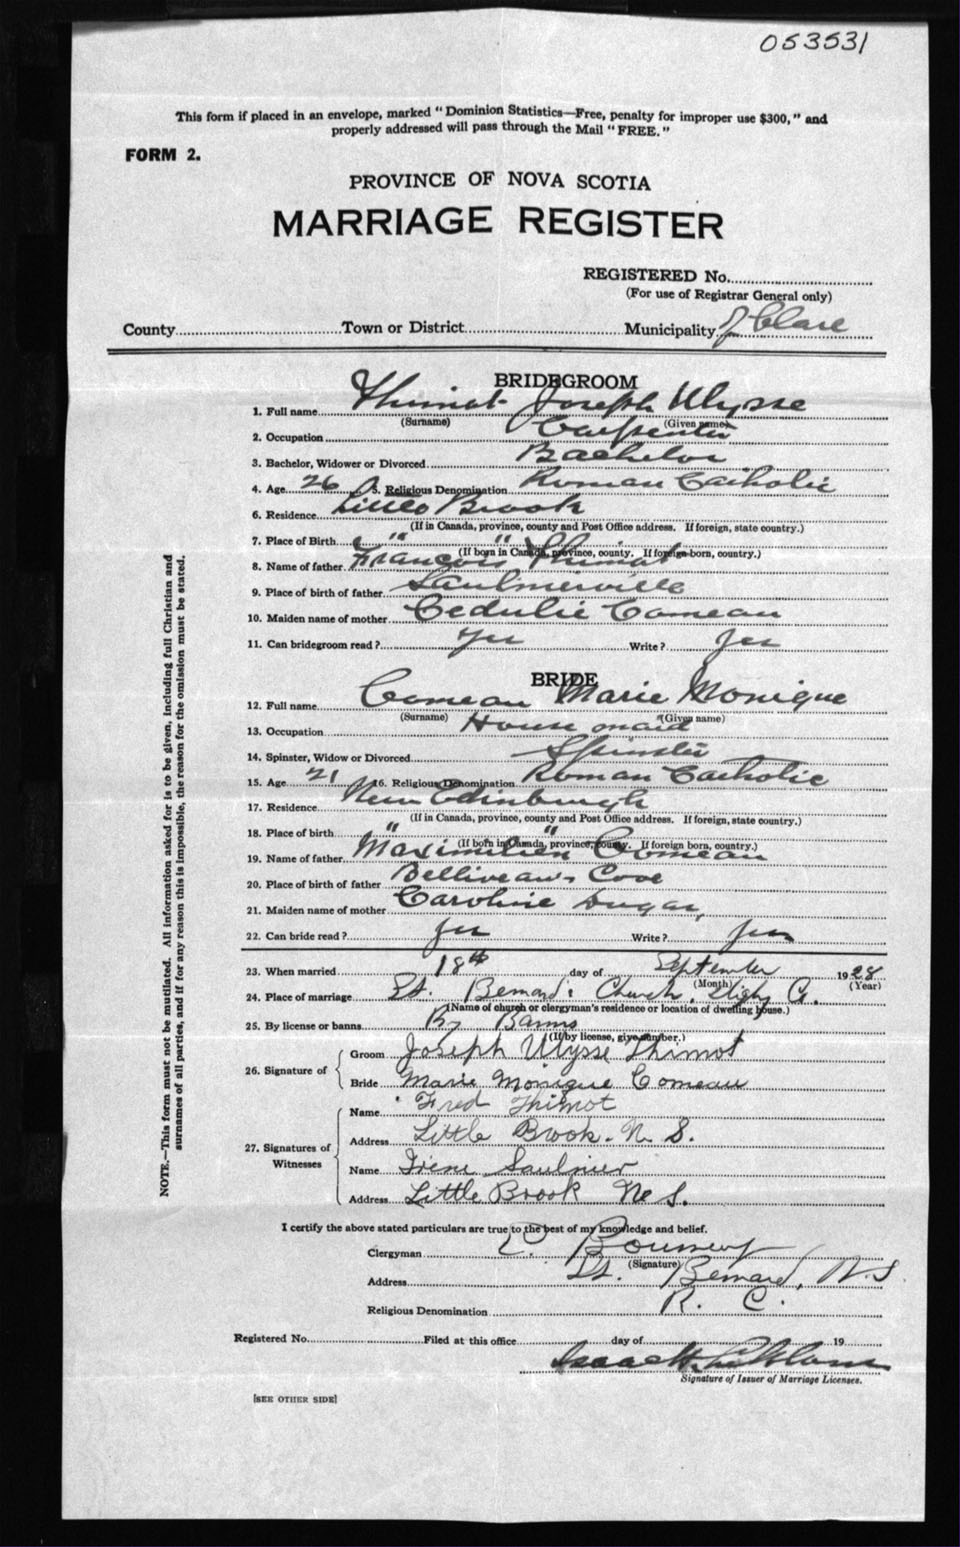 053531
This form if placed in an envelope, marked "Dominion Statistics—Free, penalty for improper use $300," and
properly addressed will pass through the Mail "FREE."
FORM 2.
PROVINCE OF NOVA SCOTIA
MARRIAGE REGISTER
REGISTERED No.
(For use of Registrar General only)
County Town or District Municipality of Clare
BRIDEGROOM
1. Full name Thimot Joseph Ulysse
(Surname) (Given name)
2. Occupation Carpenter
3. Bachelor, Widower or Divorced Bachelor
4. Age 26 5. Religious Denomination Roman Catholic
6. Residence Little Brook
(If in Canada, province, county and Post Office address. If foreign, state country.)
7. Place of Birth " "
(If born in Canada, province, county. If foreign-born, country.)
8. Name of father François Thimot
9. Place of birth of father Saulnierville
10. Maiden name of mother Cedulie Comeau
11. Can bridegroom read? Yes Write? Yes
BRIDE
12. Full name Comeau Marie Monique
(Surname) (Given name)
13. Occupation House maid
14. Spinster, Widow or Divorced Spinster
15. Age 21 16. Religious Denomination Roman Catholic
17. Residence New Edinburgh
(If in Canada, province, county and Post Office address. If foreign, state country.)
18. Place of birth " "
(If born in Canada, province, county. If foreign born, country.)
19. Name of father Maximilien Comeau
20. Place of birth of father Belliveau's Cove
21. Maiden name of mother Caroline Dugas
22. Can bride read? Yes Write? Yes
23. When married 18th day of September 1928
(Month) (Year)
24. Place of marriage St. Bernard's Church, Digby Co.
(Name of church or clergyman's residence or location of dwelling house.)
25. By license or banns By Banns
(If by license, give number.)
26. Signature of Groom Joseph Ulysse Thimot
Bride Marie Monique Comeau
27. Signatures of Witnesses
Name Fred Thimot
Address Little Brook. N. S.
Name Irene Saulnier
Address Little Brook N. S.
I certify the above stated particulars are true to the best of my knowledge and belief.
Clergyman C.
(Signature)
Address St. Bernard, N.S
Religious Denomination R. C.
Registered No. Filed at this office day of 19
Isaac
Signature of Issuer of Marriage Licenses.
[SEE OTHER SIDE]
NOTE.—This form must not be mutilated. All information asked for is to be given, including full Christian and
surnames of all parties, and if for any reason this is impossible, the reason for the omission must be stated.